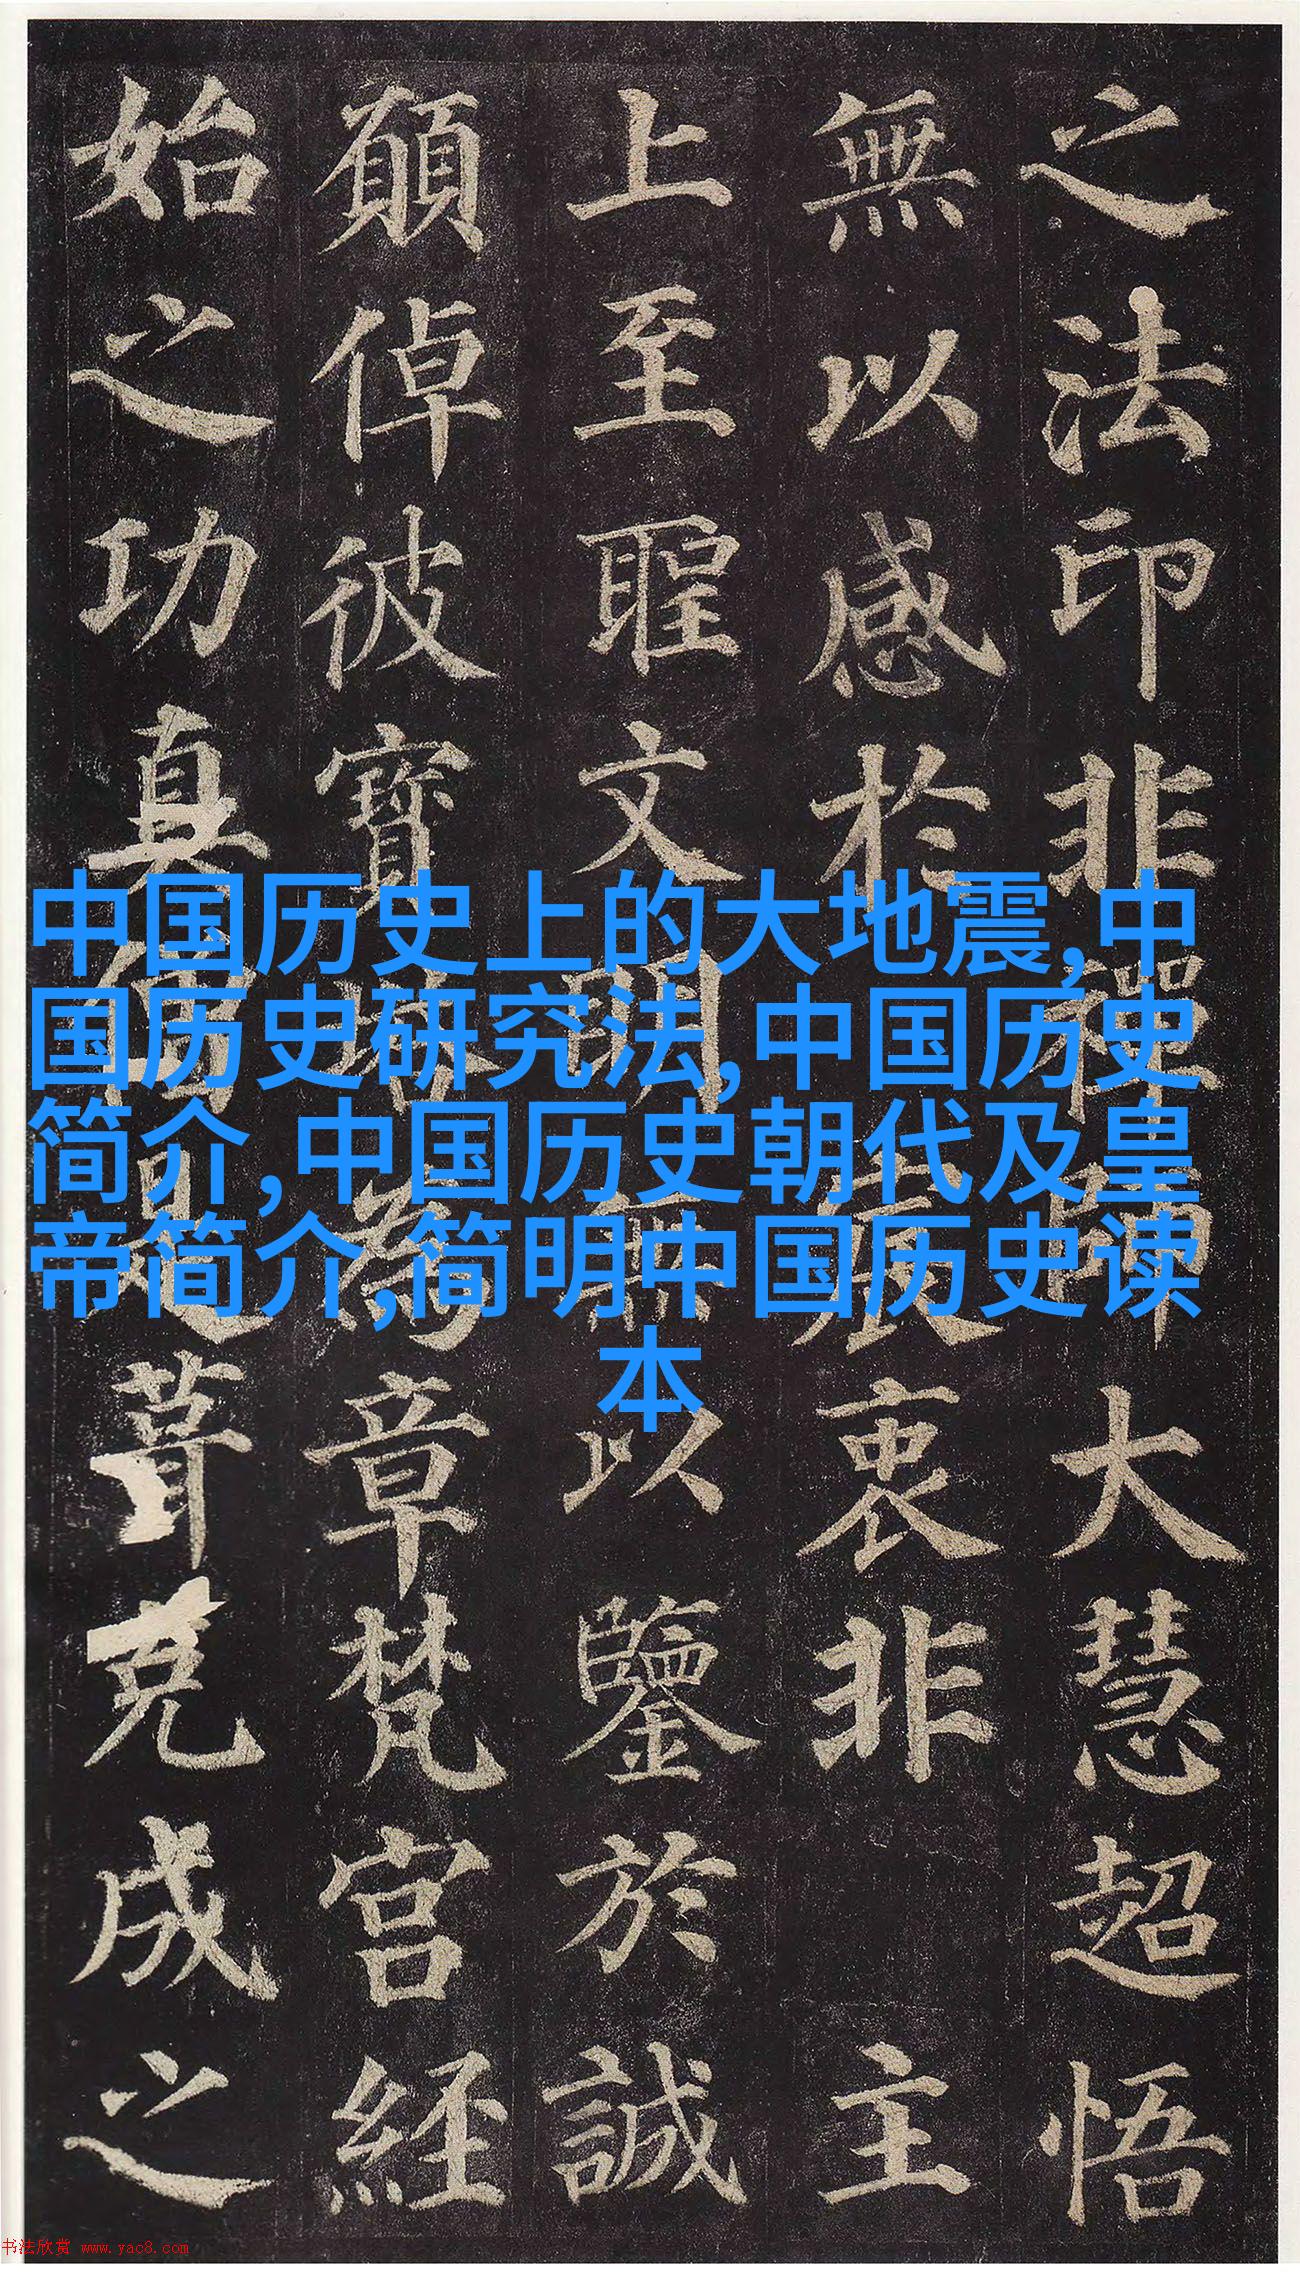 之法印非禪師大慧超悟
無以感於宸衷非主
上至聖文明無以鑒於誠
願倬彼寶塔為章梵宮經
始之功真僧是葺克成之
中国历史上的大地震,中
国历史研究法,中国历史
简介,中国历史朝代及皇
帝简介,简明中国历史读
本
书法欣赏 www.yac8.com